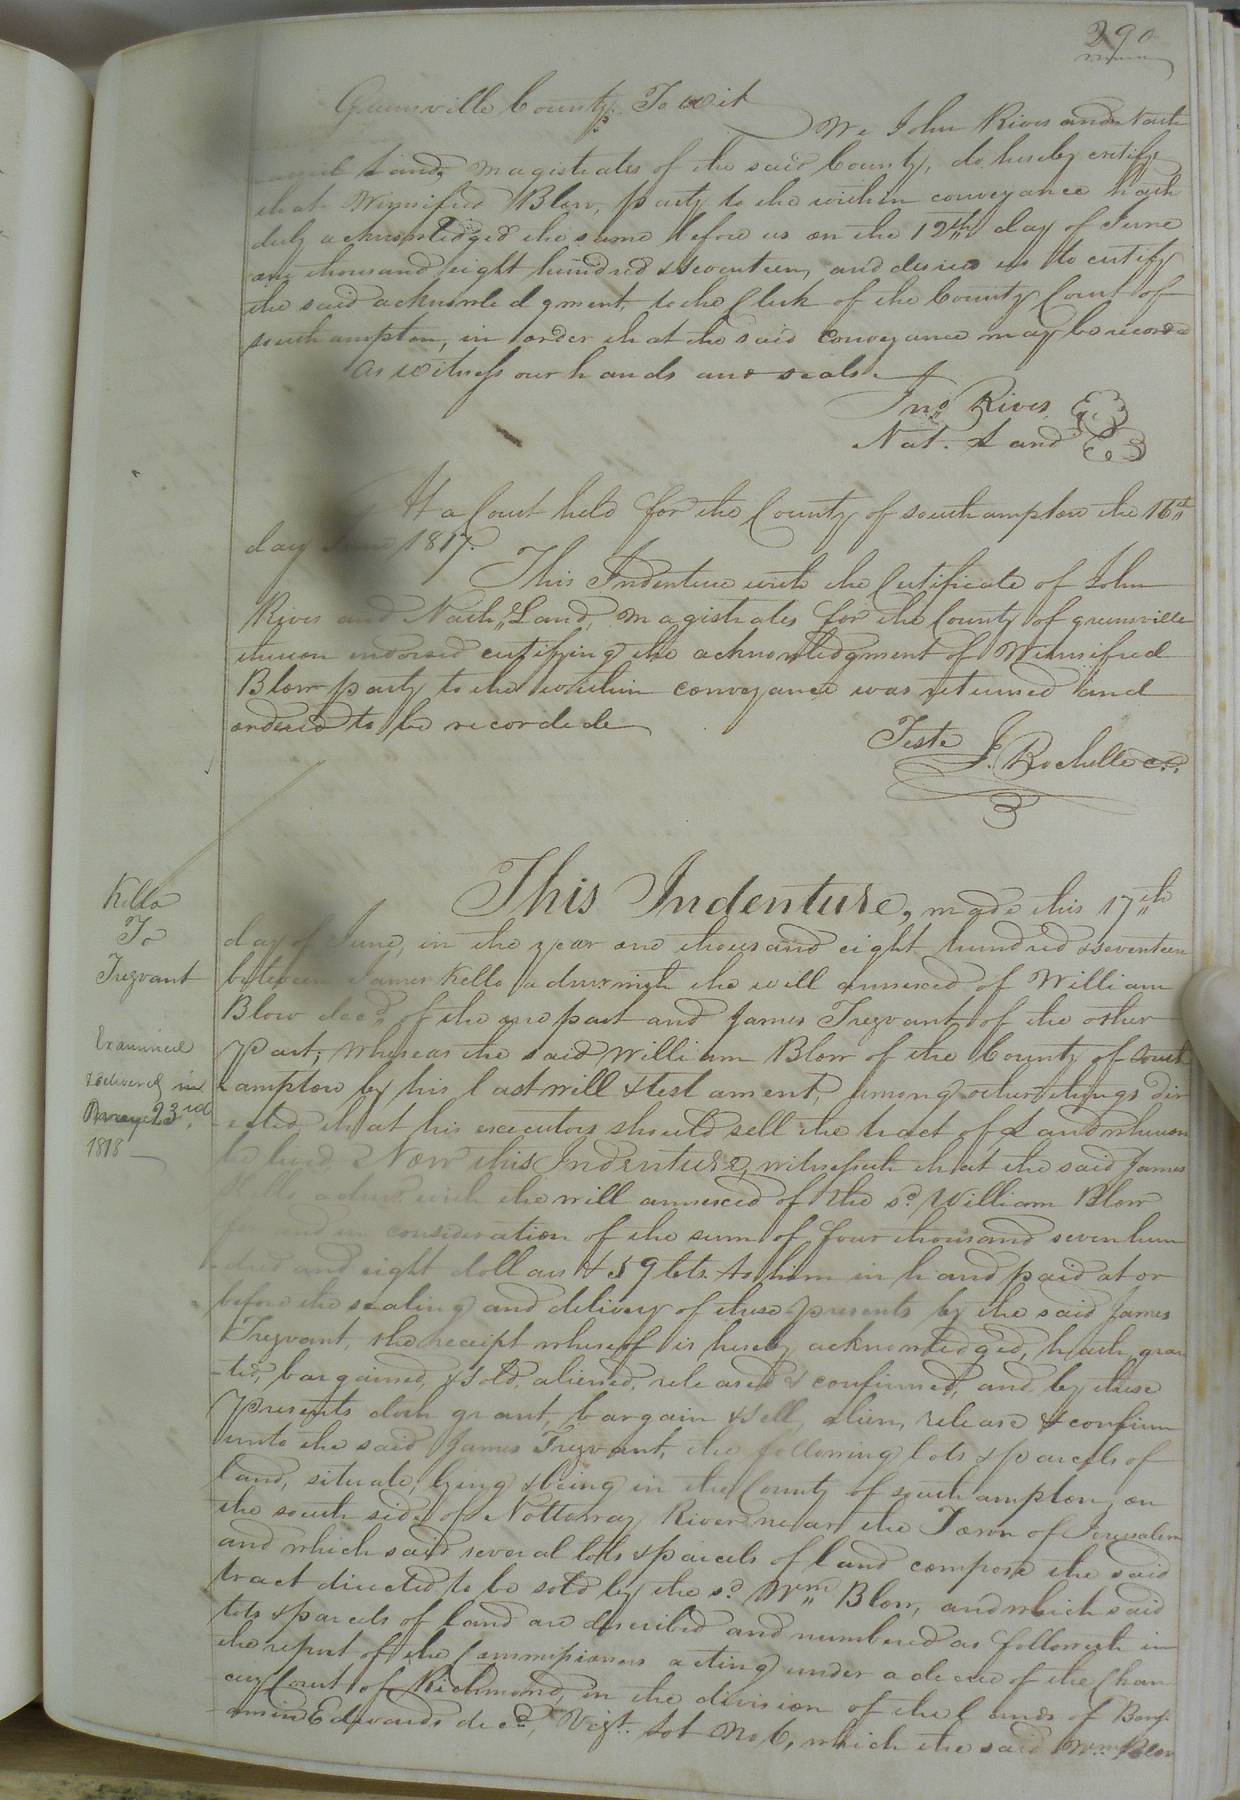 290
Greensville County To wit
We John Rives and Nath
aniel Land, Magistrates of the said County, do hereby certify
that Winnifred Blow, party to the within conveyance hath
duly acknowledged the same before us on the 12th day of June
one thousand eight hundred & seventeen, and desired us to certify
the said acknowledgment, to the Clerk of the County Court of
southampton, in order that the said conveyance may be recorded
as witness our hands and seals.
Jno. Rives
Nat. Land
At a Court held for the County of southampton the 16th
day June 1817.
This Indenture with the Certificate of John
Rives and Nath Land, Magistrates for the County of greensville
thereon endorsed certifying the acknowledgment of Winnifred
Blow party to the within conveyance was returned and
ordered to be recorded
Teste J. Rochelle c.s.
Kello
To
Trezvant
Examined
delivered in
23rd
1818
This Indenture, made this 17th
day of June, in the year one thousand eight hundred & seventeen
between James Kello admr with the will annexed of William
Blow decd. of the one part and James Trezvant of the other
Part; whereas the said William Blow of the County of South
ampton by his last will & testament, among other things dir
-ected, that his executors should sell the tract of Land whereon
he lived, Now this Indenture, witnesseth that the said James
Kello admr. with the will annexed of the sd. William Blow
for and in consideration of the sum of four thousand seven hun
-dred and eight dollars & 59 Cts. to him in hand paid at or
before the sealing and delivery of these presents by the said James
Trezvant, the receipt whereof is hereby acknowledged, hath gran
-ted, bargained, & sold, aliened, released & confirmed, and by these
Presents doth grant, bargain & sell, alien, release & confirm
unto the said James Trezvant, the following lots & parcels of
land, situate, lying & being in the County of southampton, on
the south side of Nottoway River near the Town of Jerusalem
and which said several lots & parcels of land compose the said
tract directed to be sold by the sd. Wm. Blow, and which said
lots & parcels of land are described and numbered as followeth in
the report of the Commissioners acting under a decree of the Chan
cery Court of Richmond, in the division of the lands of Benj-
amin Edwards decd., Vizt. Lot No 6, which the said Wm. Blow